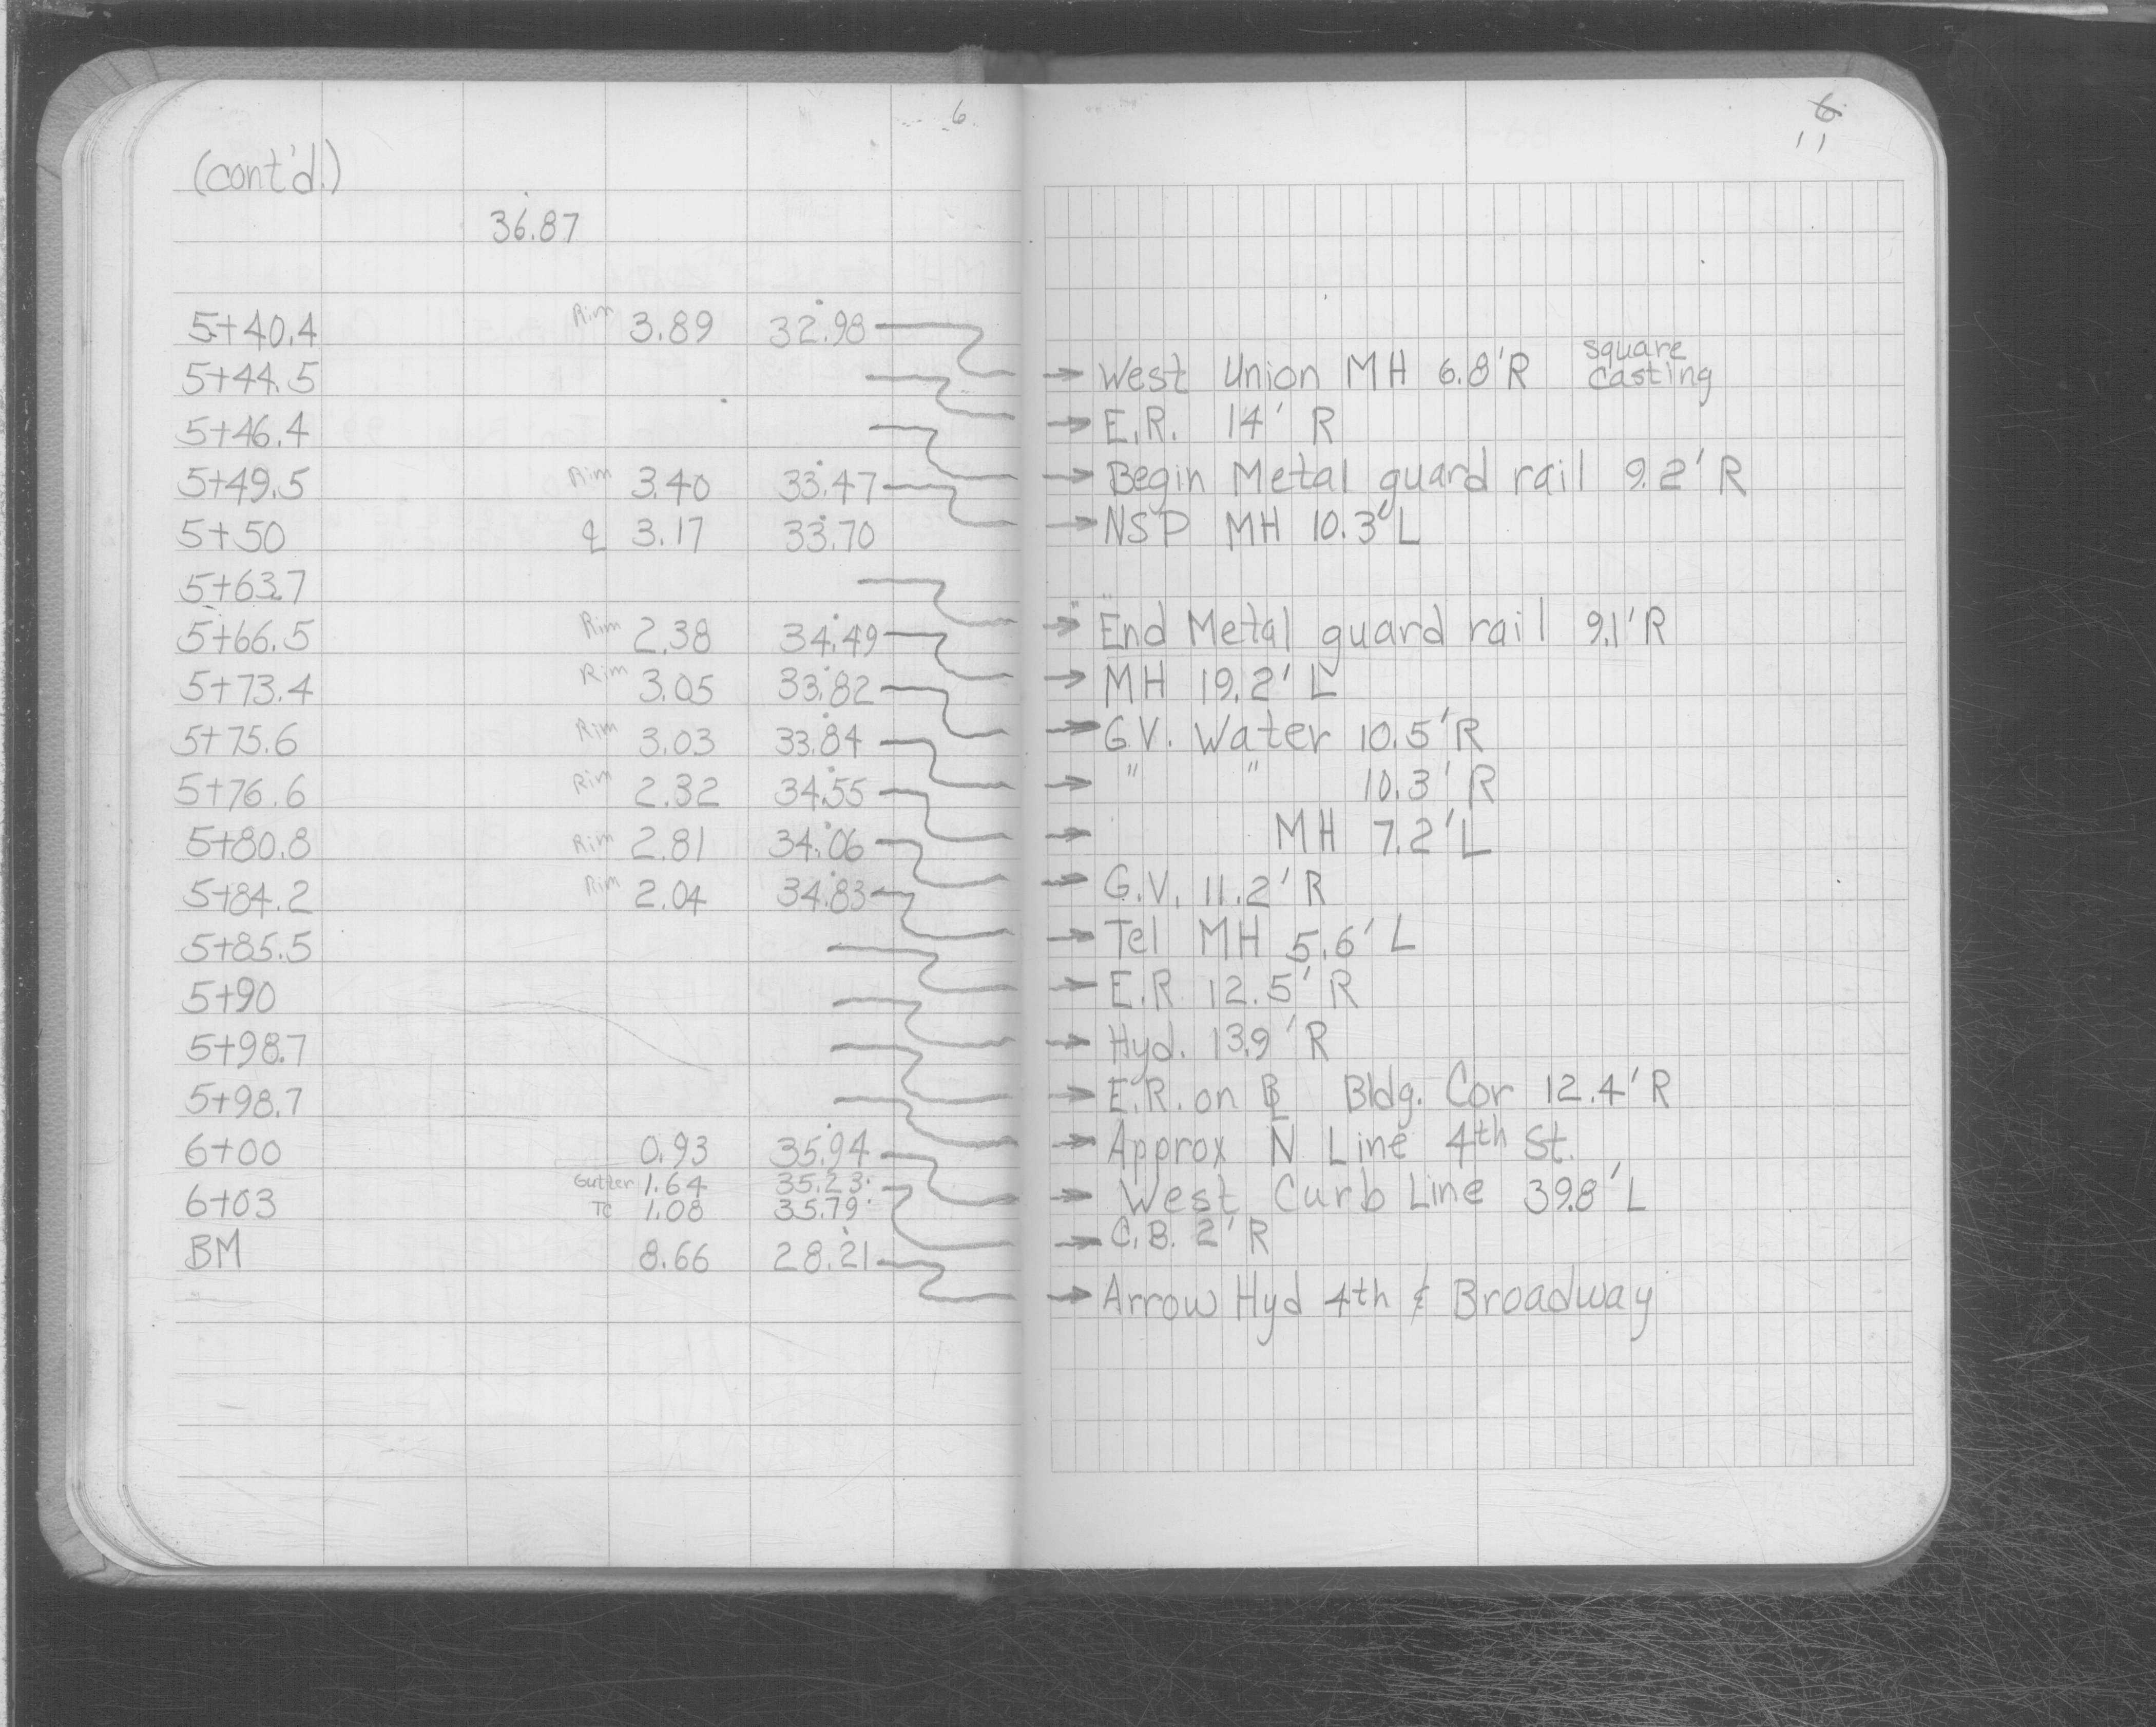 6
(cont'd.)
36.87
5+40.4 Rim 3.89 32.98
5+44.5
5+46.4
5+49.5 Rim 3.40 33.47
5+50 ℄ 3.17 33.70
5+63.7
5+66.5 Rim 2.38 34.49
5+73.4 Rim 3.05 33.82
5+75.6 Rim 3.03 33.84
5+76.6 Rim 2.32 34.55
5+80.8 Rim 2.81 34.06
5+84.2 Rim 2.04 34.83
5+85.5
5+90
5+98.7
5+98.7
6+00 0.93 35.94
Gutter 1.64 35.23
6+03 TC 1.08 35.79
BM 8.66 28.21
6
11
square
→ West Union MH 6.8'R casting
→ E.R. 14' R
→ Begin Metal guard rail 9.2' R
→ NSP MH 10.3' L
→ End Metal guard rail 9.1' R
→ MH 19.2' L
→ G.V. Water 10.5' R
→ " " 10.3' R
→ MH 7.2' L
→ G.V. 11.2' R
→ Tel MH 5.6' L
→ E.R. 12.5' R
→ Hyd. 13.9' R
→ E.R. on BL Bldg. Cor 12.4' R
→ Approx N Line 4th St.
→ West Curb Line 39.8' L
→ C.B. 2' R
→ Arrow Hyd 4th & Broadway